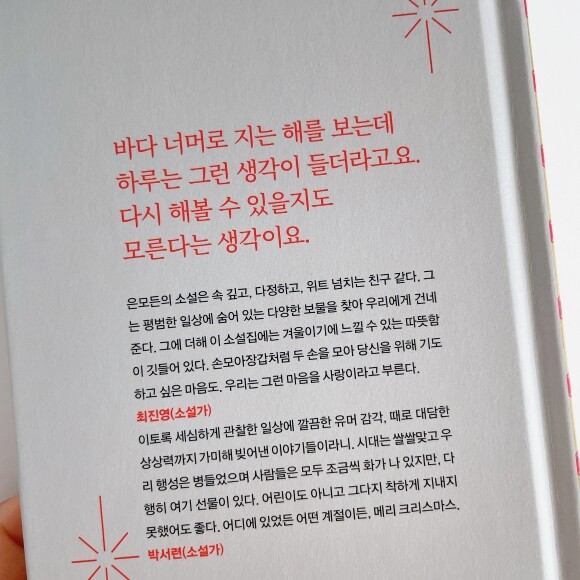 바다 너머로 지는 해를 보는데
하루는 그런 생각이 들더라고요.
다시 해볼 수 있을지도
모른다는 생각이요.
은모든의 소설은 속 깊고, 다정하고, 위트 넘치는 친구 같다. 그
는 평범한 일상에 숨어 있는 다양한 보물을 찾아 우리에게 건네
준다. 그에 더해 이 소설집에는 겨울이기에 느낄 수 있는 따뜻함
이 깃들어 있다. 손모아장갑처럼 두 손을 모아 당신을 위해 기도
하고 싶은 마음도. 우리는 그런 마음을 사랑이라고 부른다.
최진영(소설가)
이토록 세심하게 관찰한 일상에 깔끔한 유머 감각, 때로 대담한
상상력까지 가미해 빚어낸 이야기들이라니. 시대는 쌀쌀맞고 우
리 행성은 병들었으며 사람들은 모두 조금씩 화가 나 있지만, 다
행히 여기 선물이 있다. 어린이도 아니고 그다지 착하게 지내지
못했어도 좋다. 어디에 있었든 어떤 계절이든, 메리 크리스마스.
박서련(소설가)